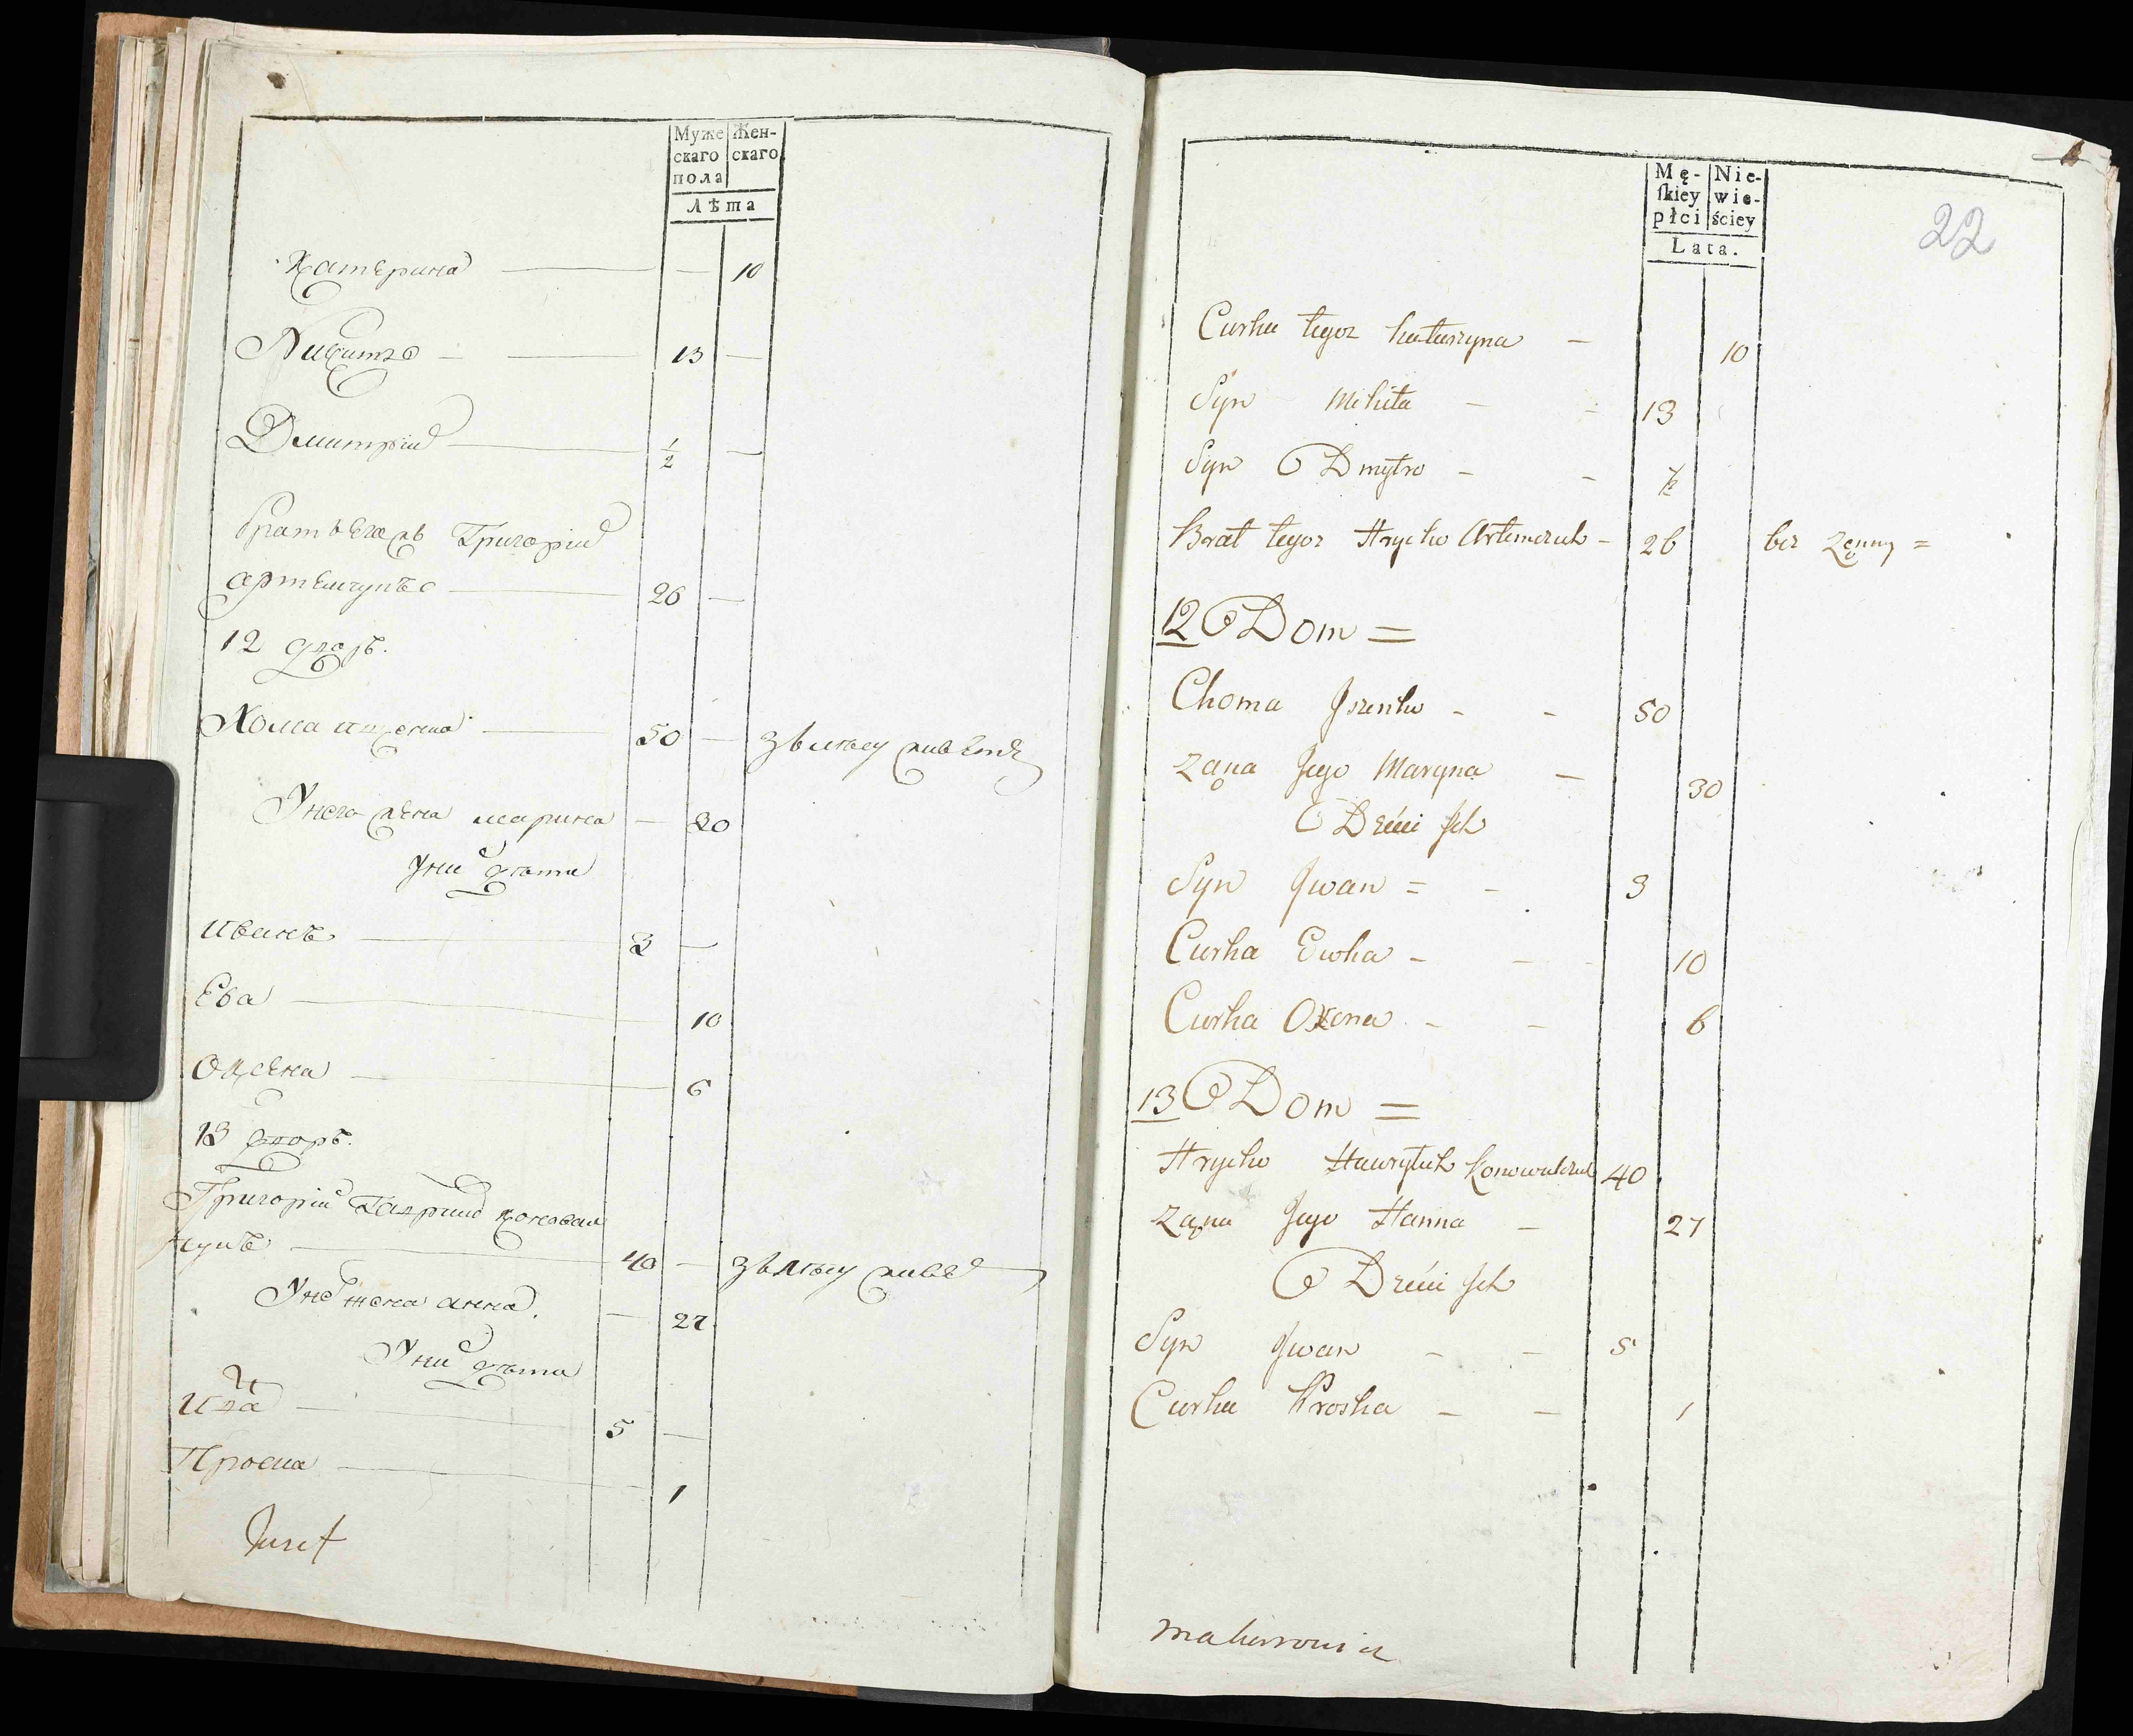 Муже
скаго
пола
Жен-
скаго
Лѣта
Катерина — — 10
Никита — 13 —
Дмитрий — 1/2 —
братъ Егожъ Григорий
артемчукъ — 26 —
12 дворъ.
Хома — 50 —
Унего жена марина — 30
Уних дѣти
иванъ — 3 —
Ева — 10
Оксена — 6
13 дворъ.
Григорий Гаврилю коновал
чукъ — 40 —
Унего жена анна. — 27
Уних дѣти
Ива — 5 —
Проска — 1
Jozef
Mę-
ſkiey
płci
Nie-
wie-
ściey
Lata.
22
Curka tegoz Katarzyna — 10
Syn Mikita — - 13
Syn Dmytro — - 1/2
Brat tegoz Hrycko Artemczuk — 26 bez Zony =
12 Dom =
Choma Iszenko - - 50
Zona Jego Maryna — 30
Dzieci Ich
Syn Jwan = - 3
Curka Ewka - - 10
Curka Oxena - - 6
13 Dom =
Hrycko Hawryluk Konowalczuk 40
Zona Jego Hanna — 27
Dzieci Ich
Syn Jwan - - 5
Curka Proska — — 1